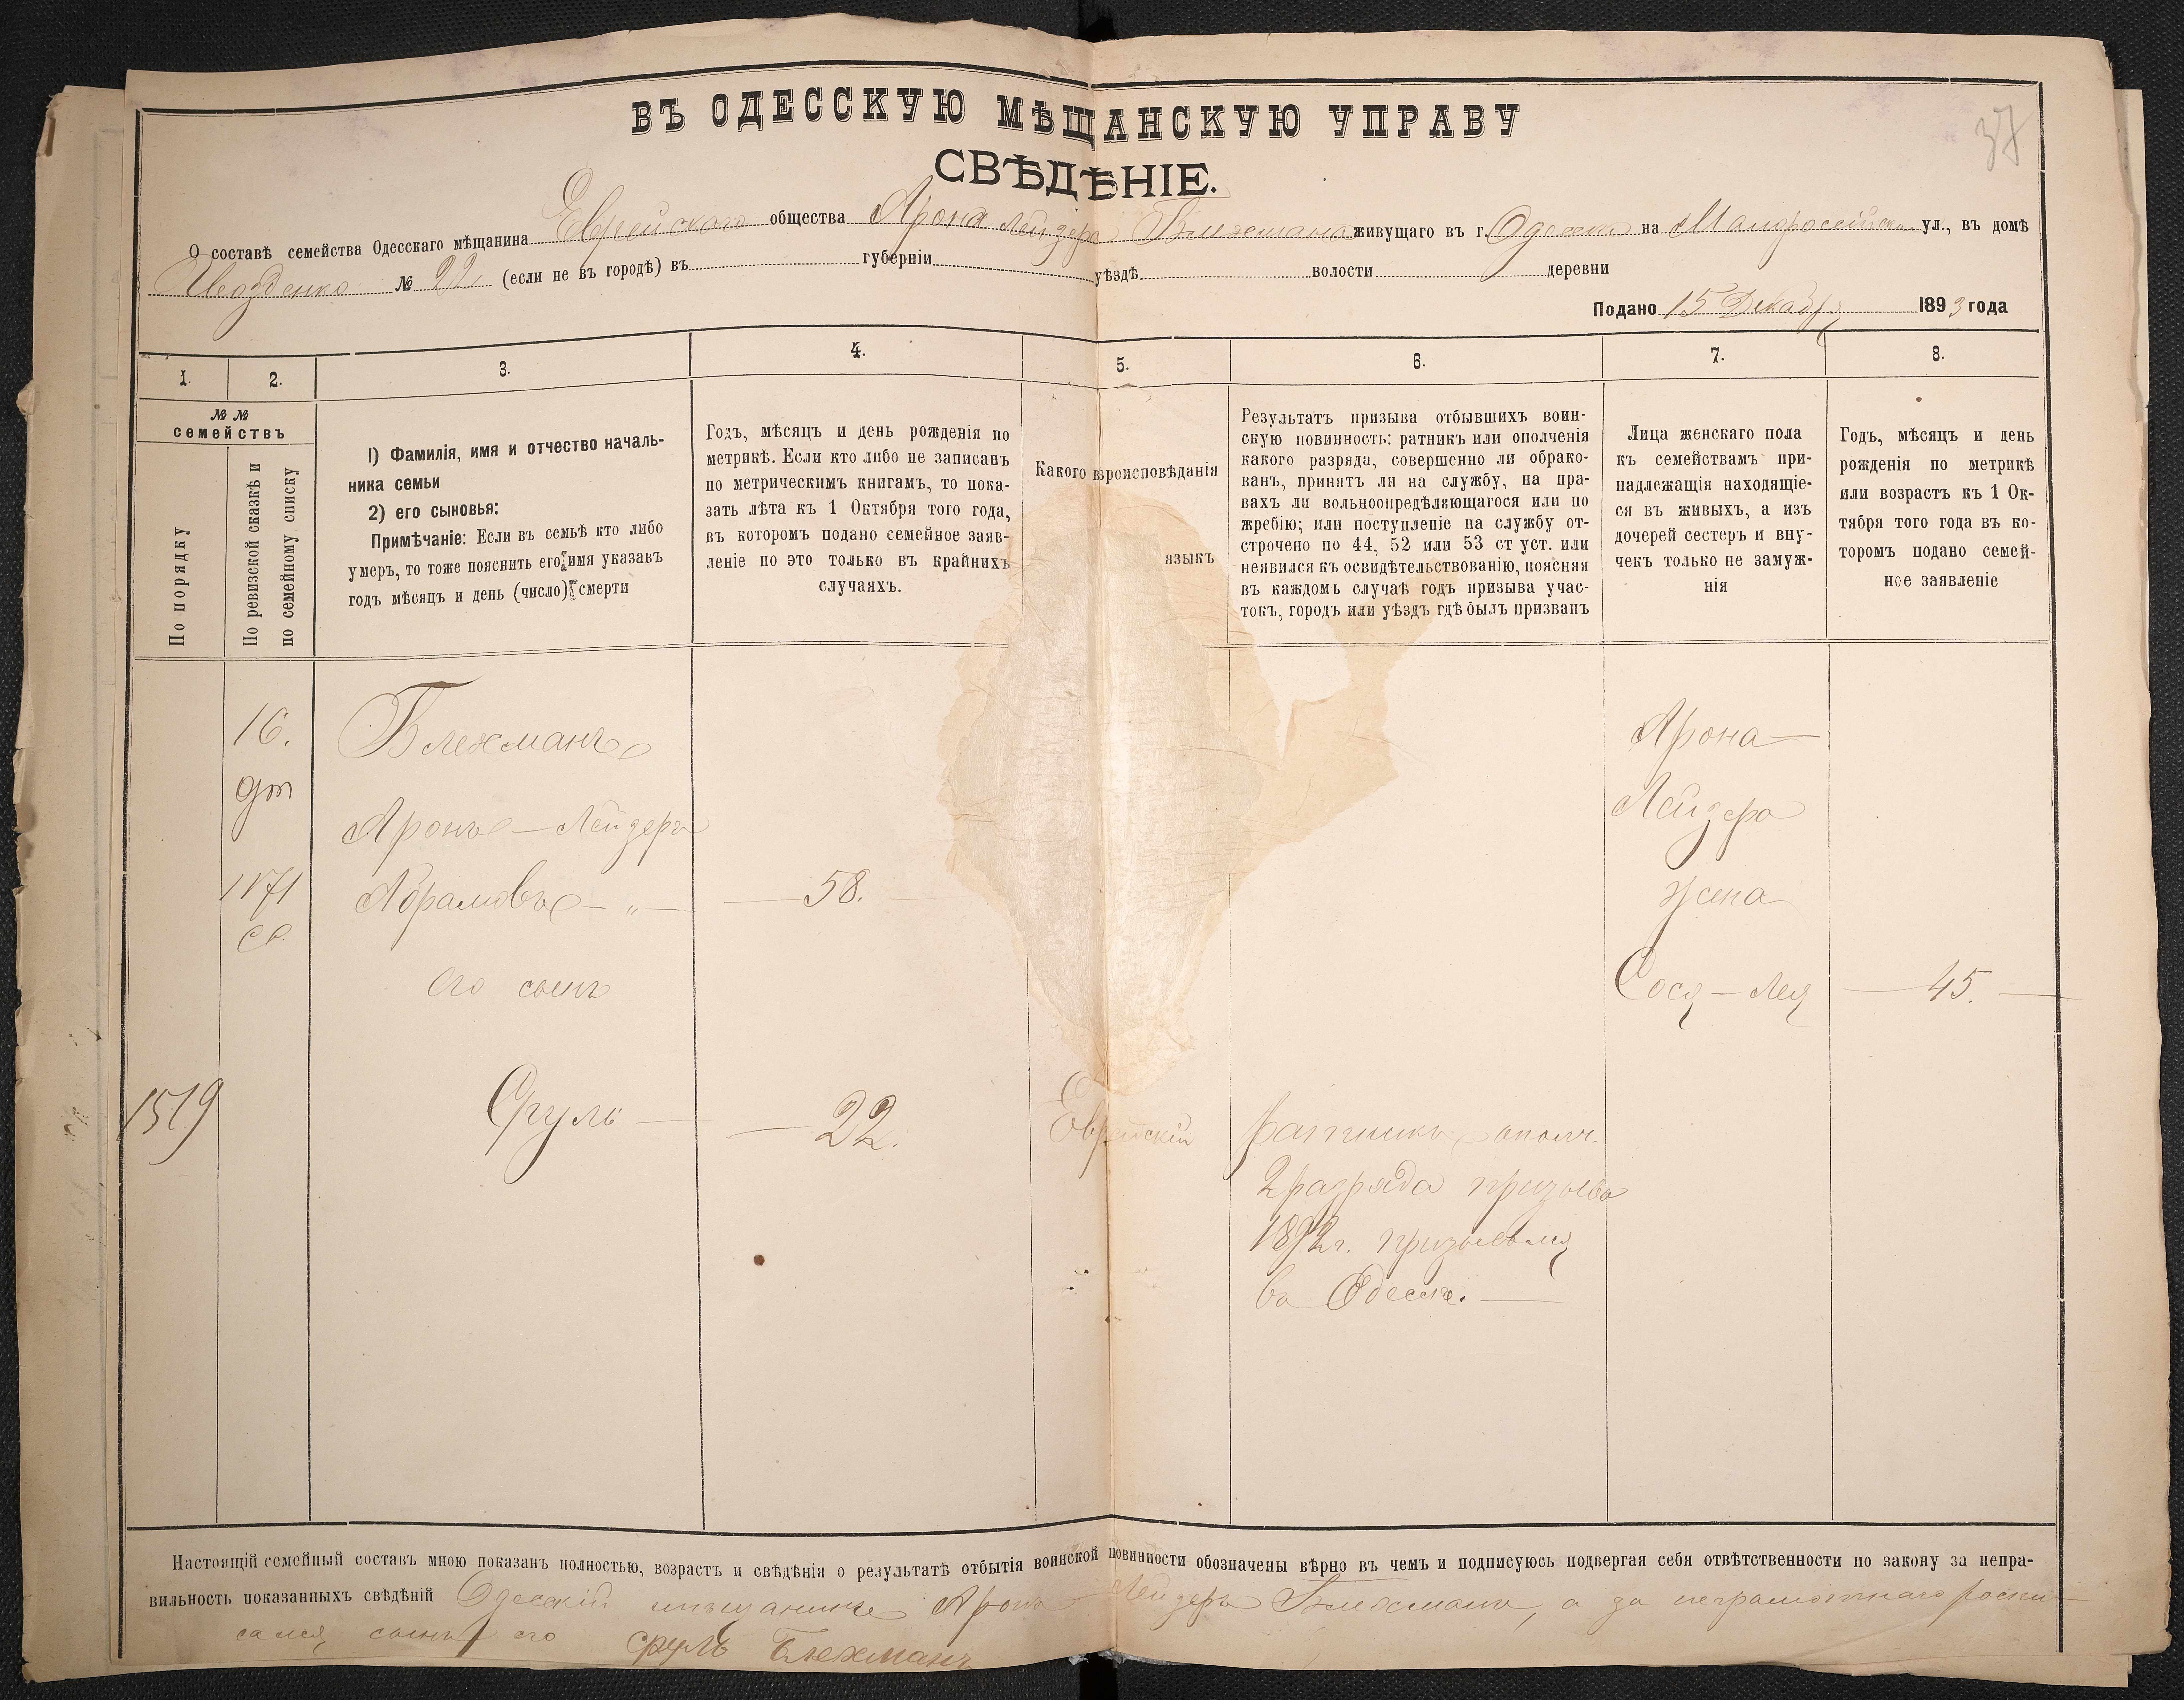 37
ВЪ ОДЕССКУЮ МѢЩАНСКУЮ УПРАВУ
СВѢДѢНІЕ.
О составѣ семейства Одесскаго мѣщанина Еврейскаго общества Арона Лейзера Блехмана живущаго въ г. Одессѣ на ул., въ домѣ
№ 22 (если не въ городѣ) въ губерніи уѣздѣ волости деревни
Подано 15 Декабр 1893 года
1. 2. 3. 4. 5. 6. 7. 8.
№ №
семействъ
По порядку
По ревизской сказкѣ и
по семейному списку
I) Фамилія, имя и отчество началь-
ника семьи
2) его сыновья:
Примѣчаніе: Если въ семьѣ кто либо
умеръ, то тоже пояснить его имя указавъ
годъ мѣсяцъ и день (число) смерти
Годъ, мѣсяцъ и день рожденія по
метрикѣ. Если кто либо не записанъ
по метрическимъ книгамъ, то пока-
зать лѣта къ 1 Октября того года,
въ которомъ подано семейное заяв-
леніе но это только въ крайнихъ
случаяхъ.
Какого вѣроисповѣданія
языкъ
Результатъ призыва отбывшихъ воин-
скую повинность: ратникъ или ополченія
какого разряда, совершенно ли обрако-
ванъ, принятъ ли на службу, на пра-
вахъ ли вольноопредѣляющагося или по
жребію; или поступленіе на службу от-
строчено по 44, 52 или 53 ст уст. или
неявился къ освидѣтельствованію, поясняя
въ каждомъ случаѣ годъ призыва учас-
токъ, городъ или уѣздъ гдѣ былъ призванъ
Лица женскаго пола
къ семействамъ при-
надлежащія находящіе-
ся въ живыхъ, а изъ
дочерей сестеръ и вну-
чекъ только не замуж-
нія
Годъ, мѣсяцъ и день
рожденія по метрикѣ
или возрастъ къ 1 Ок-
тября того года въ ко-
торомъ подано семей-
ное заявленіе
16.
1171
Блехманъ
Аронъ-Лейзеръ
Абрамовъ — „ — 58.
его сынъ
1519
Сруль — 22.
Еврейскій
ратникъ ополч.
2 разряда призыва
1892 г. призывался
въ Одессѣ.
Арона
Лейзера
жена
Сося-Лея — 45.
Настоящій семейный составъ мною показанъ полностью, возрастъ и свѣдѣнія о результатѣ отбытія воинской повинности обозначены вѣрно въ чемъ и подписуюсь подвергая себя отвѣтственности по закону за непра-
вильность показанныхъ свѣдѣній Одесскій мѣщанинъ Аронъ Лейзеръ Блехманъ, а за неграмотнаго роспи-
сался сынъ его Сруль Блехманъ